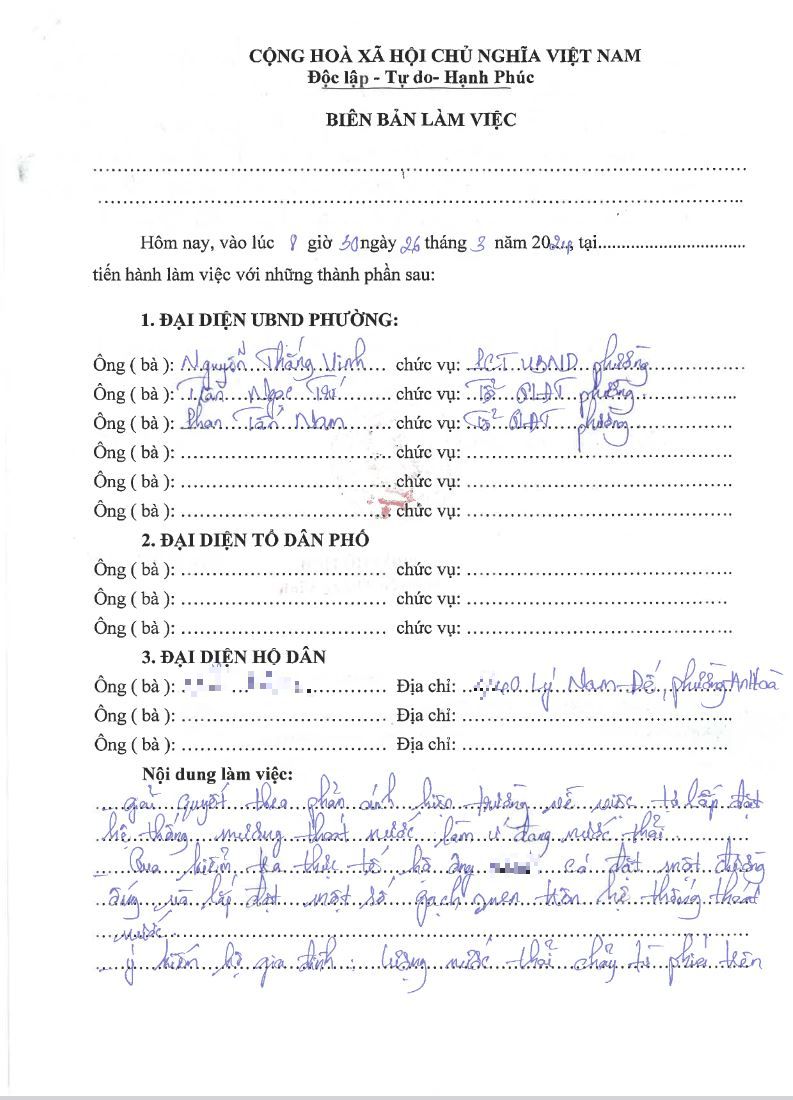 CỘNG HOÀ XÃ HỘI CHỦ NGHĨA VIỆT NAM
Độc lập - Tự do- Hạnh Phúc
BIÊN BẢN LÀM VIỆC
Hôm nay, vào lúc 8 giờ 30 ngày 26 tháng 3 năm 2024, tại
tiến hành làm việc với những thành phần sau:
1. ĐẠI DIỆN UBND PHƯỜNG:
Ông ( bà ): Nguyễn Thắng Vinh chức vụ: PCT UBND phường
Ông ( bà ): Trần Ngọc chức vụ: Tổ phường
Ông ( bà ): Phan Tấn Nam chức vụ: Tổ phường
Ông ( bà ): chức vụ:
Ông ( bà ): chức vụ:
Ông ( bà ): chức vụ:
2. ĐẠI DIỆN TỔ DÂN PHỐ
Ông ( bà ): chức vụ:
Ông ( bà ): chức vụ:
Ông ( bà ): chức vụ:
3. ĐẠI DIỆN HỘ DÂN
Ông ( bà ): Địa chỉ: 40 Lý Nam Đế, phường An Hoà
Ông ( bà ): Địa chỉ:
Ông ( bà ): Địa chỉ:
Nội dung làm việc:
giải quyết theo phản ánh hiện trường về việc tự lắp đặt
hệ thống mương thoát nước làm ứ đọng nước thải.
- Qua kiểm tra thực tế hộ ông có đặt một đường
ống và lắp đặt một số gạch quen trên hệ thống thoát
nước.
- ý kiến hộ gia đình: lượng nước thải chảy từ phía trên